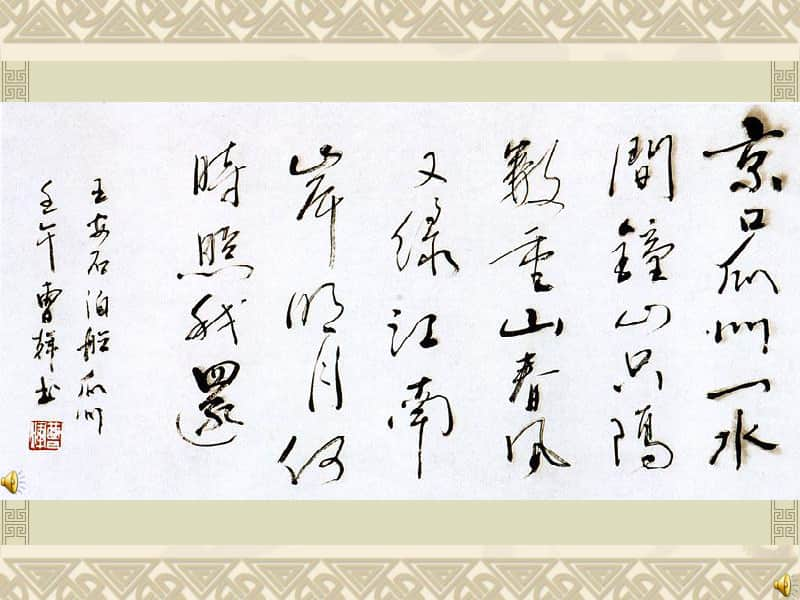 京口瓜洲一水
間鐘山只隔
數重山春風
又綠江南
岸明月何
時照我還
王安石泊船瓜洲
壬午曹輝书